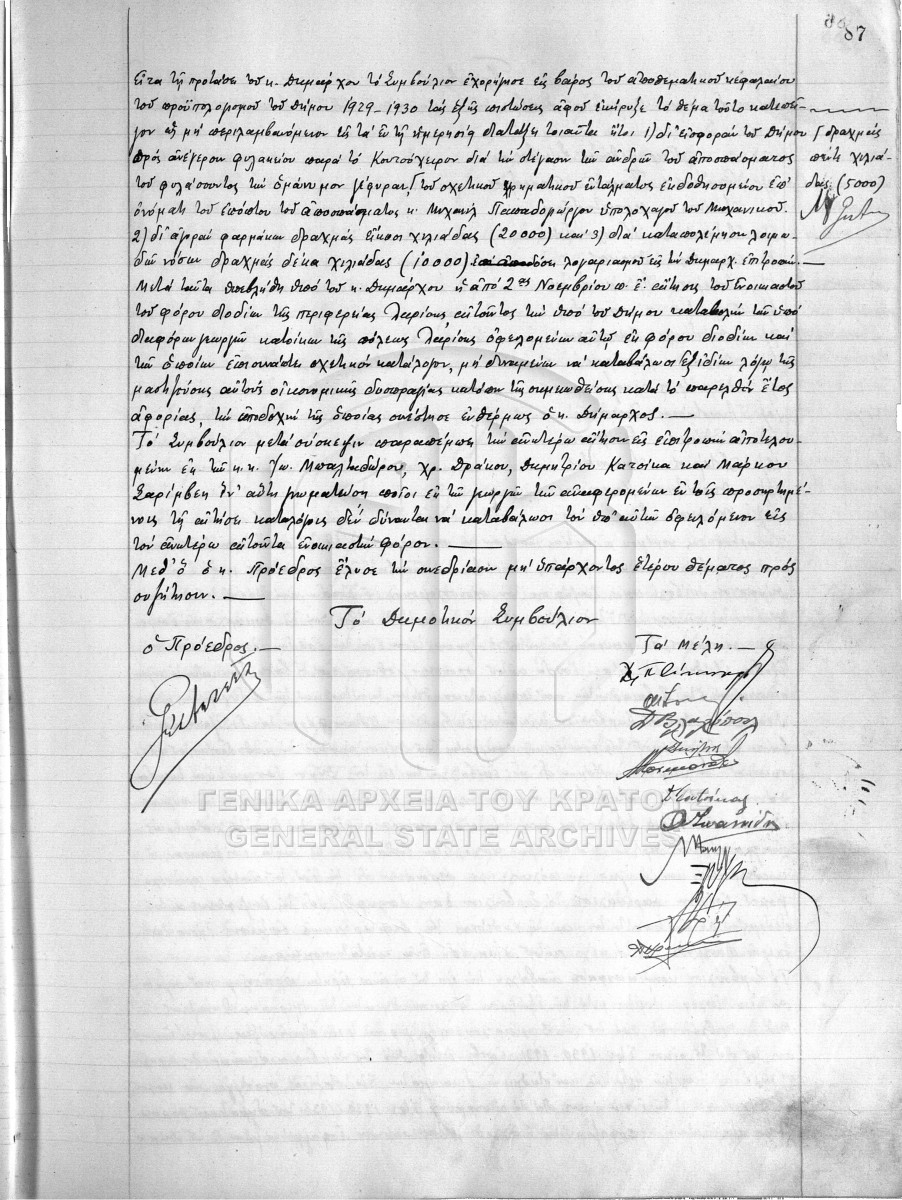 87
Εἶτα τῇ προτάσει τοῦ κ. Δημάρχου τὸ Συμβούλιον ἐχορήγησε εἰς βάρος τοῦ ἀποθεματικοῦ κεφαλαίου
τοῦ προϋπολογισμοῦ τοῦ Δήμου 1929-1930 τὰς ἑξῆς πιστώσεις ἀφοῦ ἐκήρυξε τὸ θέμα τοῦτο κατεπεῖ-
γον ὡς μὴ περιλαμβανόμενον εἰς τὰ ἐν τῇ ἡμερησίᾳ διατάξει τοιαῦτα ἤτοι 1) δι' εἰσφορὰν τοῦ Δήμου
πρὸς ἀνέγερσιν φυλακείου παρὰ τὸ Κουτσόχειρον διὰ τὴν στέγασιν τῶν ἀνδρῶν τοῦ ἀποσπάσματος
τοῦ φυλάσσοντος τὴν ὁμώνυμον γέφυραν τοῦ σχετικοῦ χρηματικοῦ ἐντάλματος ἐκδοθησομένου ἐπ'
ὀνόματι τοῦ ἐπόπτου τοῦ ἀποσπάσματος κ. Μιχαὴλ Παπαδογιώργου ὑπολοχαγοῦ τοῦ Μηχανικοῦ.
2) δι' ἀγορὰν φαρμάκων δραχμὰς εἴκοσι χιλιάδας (20000) καὶ 3) διὰ καταπολέμησιν λοιμω-
δῶν νόσων δραχμὰς δέκα χιλιάδας (10000) λογαριασμοῦ εἰς τὴν Δημαρχ. ἐπιτροπήν.
Μετὰ ταῦτα ὑπεβλήθη ὑπὸ τοῦ κ. Δημάρχου ἡ ἀπὸ 2ας Νοεμβρίου π. ἔ. αἴτησις τοῦ ἐνοικιαστοῦ
τοῦ φόρου διοδίων τῆς περιφερείας Λαρίσης αἰτοῦντος τὴν ὑπὸ τοῦ Δήμου καταβολὴν τῶν ὑπὸ
διαφόρων γεωργῶν κατοίκων τῆς πόλεως Λαρίσης ὀφειλομένων αὐτῷ ἐκ φόρου διοδίων καὶ
τῶν ὁποίων ἐπισυνάπτει σχετικὸν κατάλογον, μὴ δυναμένων νὰ καταβάλωσι ἐξ ἰδίων λόγῳ τῆς
μαστιζούσης αὐτοὺς οἰκονομικῆς δυσπραγίας κατόπιν τῆς σημειωθείσης κατὰ τὸ παρελθὸν ἔτος
ἀφορίας, τὴν ἀποδοχὴν τῆς ὁποίας συνέστησε ἐνθέρμως ὁ κ. Δήμαρχος.—
Τὸ Συμβούλιον μετὰ σύσκεψιν παραπέμπει τὴν ἀνωτέρω αἴτησιν εἰς ἐπιτροπὴν ἀποτελου-
μένην ἐκ τῶν κ.κ. Ἰω. Μπαλταδώρου, Χρ. Δράκου, Δημητρίου Κατσίκα καὶ Μάρκου
Σαρίμβεη ἵν' αὕτη γνωματεύσῃ ποῖοι ἐκ τῶν γεωργῶν τῶν ἀναφερομένων ἐν τοῖς προσηρτημέ-
νοις τῇ αἰτήσει καταλόγοις δὲν δύνανται νὰ καταβάλωσι τὸν ὑπ' αὐτῶν ὀφειλόμενον εἰς
τὸν ἀνωτέρω αἰτοῦντα ἐνοικιαστὴν φόρον.—
Μεθ' ὃ ὁ κ. Πρόεδρος ἔλυσε τὴν συνεδρίασιν μὴ ὑπάρχοντος ἑτέρου θέματος πρὸς
συζήτησιν.—
δραχμὰς
πέντε χιλιά-
δας (5000)
Τὸ Δημοτικὸν Συμβούλιον
ὁ Πρόεδρος.—
Τὰ Μέλη.—
ΓΕΝΙΚΑ ΑΡΧΕΙΑ ΤΟΥ ΚΡΑΤΟΥΣ
GENERAL STATE ARCHIVES